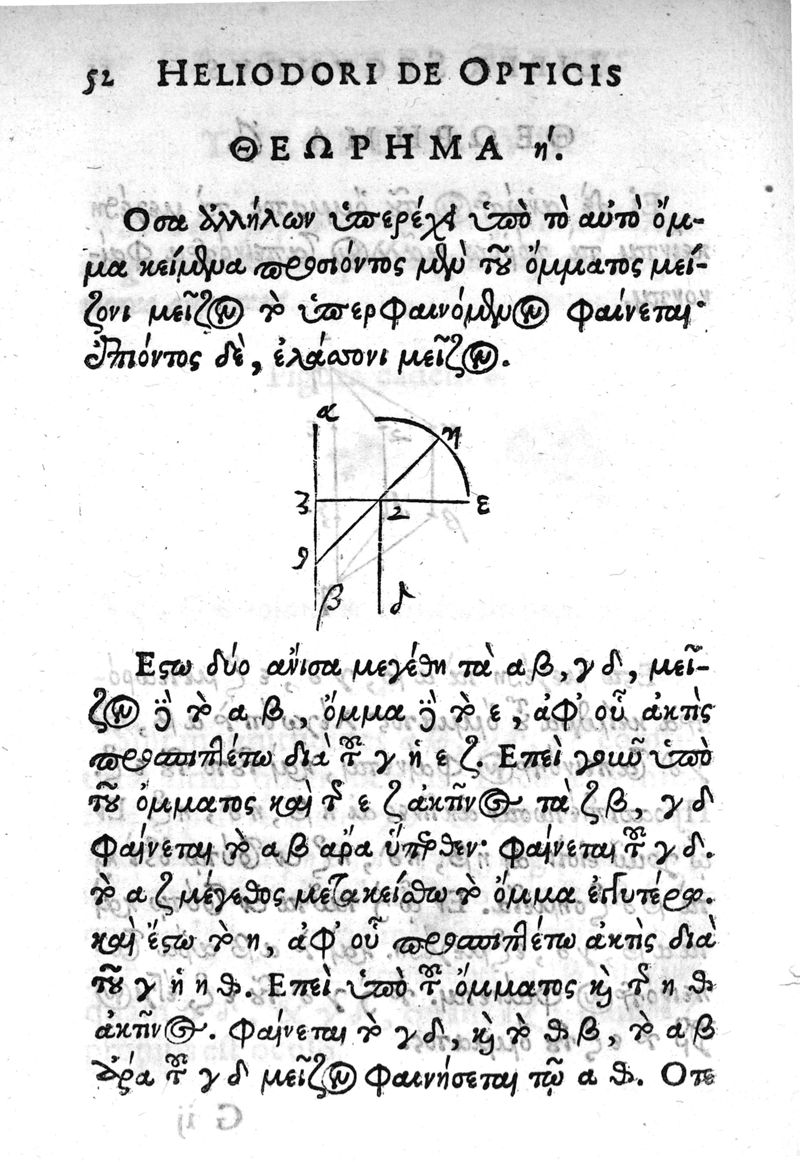 52 HELIODORI DE OPTICIS
ΘΕΩΡΗΜΑ η΄.
Οσα ἀλλήλων ὑπερέχει ὑπὸ τὸ αὐτὸ ὄμ-
μα κείμενα προσιόντος μὲν τοῦ ὄμματος μεί-
ζονι μεῖζον τὸ ὑπερφαινόμενον φαίνεται·
ἀπιόντος δὲ, ἐλάσσονι μεῖζον.
α
η
ζ
γ
ε
θ
β
δ
Εςω δύο ἄνισα μεγέθη τὰ α β, γ δ, μεῖ-
ζον ἢ τὸ α β, ὄμμα ἢ τὸ ε, ἀφ' οὗ ἀκτὶς
προσπιπτέτω διὰ τοῦ γ ἡ ε ζ. Επεὶ γοιοῦ ὑπὸ
τοῦ ὄμματος καὶ τῆς ε ζ ἀκτῖνος τὰ ζ β, γ δ
φαίνεται τὸ α β ἄρα ὕπερθεν· φαίνεται τοῦ γ δ.
τὸ α ζ μέγεθος μετακείσθω τὸ ὄμμα ἐγγυτέρω.
καὶ ἔςω τὸ η, ἀφ' οὗ προσπιπτέτω ἀκτὶς διὰ
τοῦ γ ἡ η θ. Επεὶ ὑπὸ τοῦ ὄμματος καὶ τῆς η θ
ἀκτῖνος. Φαίνεται τὸ γ δ, καὶ τὸ θ β, τὸ α β
ἄρα τοῦ γ δ μεῖζον φαινήσεται τῷ α θ. Οπε